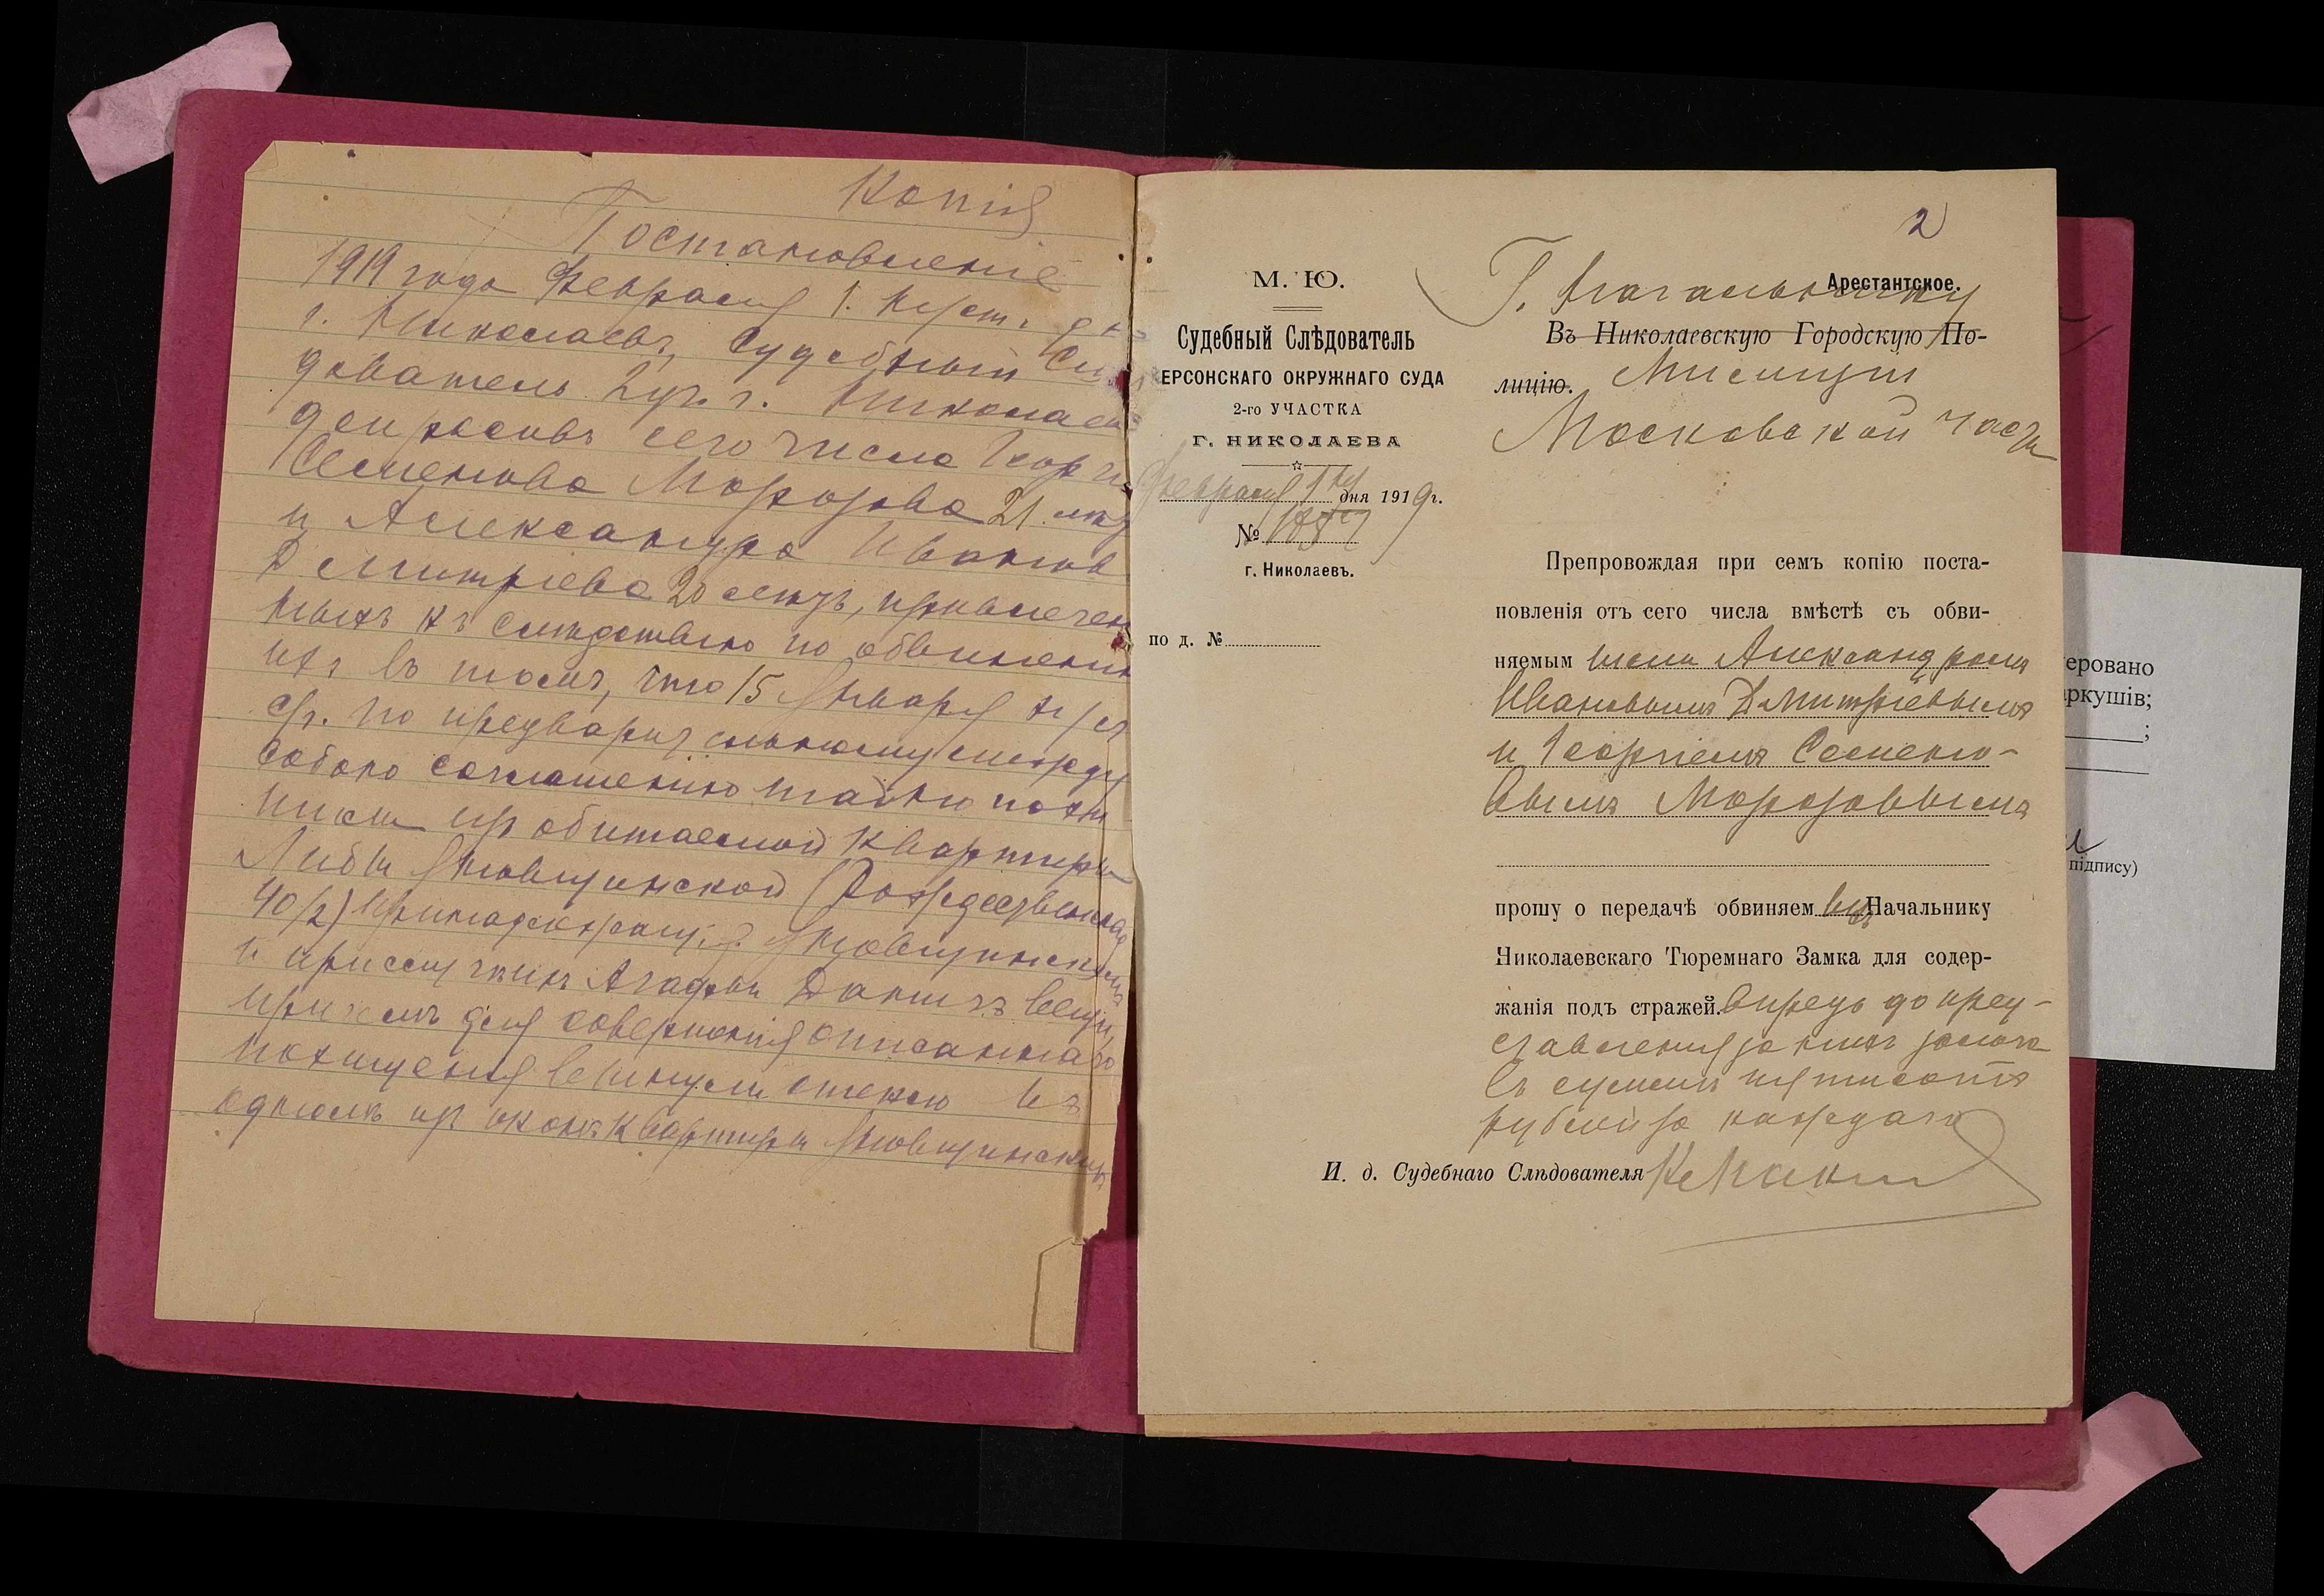 Копія
Постановленіе
1919 года Февраля 1. дня
г. Николаевъ, Судебный Слѣ
дователь 2 уч. г. Николаева
допросивъ сего числа Георгія
Семенова Морозова 21 лѣтъ
и Александра Иванова
Дмитріева 20 лѣтъ, привлечен
ныхъ къ слѣдствію по обвиненію
ихъ въ томъ, что 15 Января
с/г. по предварительному между
собою соглашенію тайно похи
тили изъ обитаемой квартиры
Либы Яновщинской (Рождественская
40/2) принадлежащія Яновщинской
и прислугѣ Агафьи вещи,
причемъ для совершенія описаннаго
похищенія вынули стекло въ
одномъ изъ оконъ квартиры Яновщинской
2
М. Ю.
Судебный Слѣдователь
ЕРСОНСКАГО ОКРУЖНАГО СУДА
2-го УЧАСТКА
Г. НИКОЛАЕВА
Февраля 1 дня 1919г.
№
г. Николаевъ.
по д. №
Арестантское.
Г. Начальнику
Въ Николаевскую Городскую По-
лицію. Милиціи
Московской части
Препровождая при семъ копію поста-
новленія отъ сего числа вмѣстѣ съ обви-
няемыми Александромъ
Ивановымъ Дмитріевымъ
и Георгіемъ Семено-
вымъ Морозовымъ
прошу о передачѣ обвиняемыхъ Начальнику
Николаевскаго Тюремнаго Замка для содер-
жанія подъ стражей. впредь до пред-
ставленія за нихъ залога
въ суммѣ пятисотъ
рублей за каждаго
И. д. Судебнаго Слѣдователя
еровано
ркушів;
;
підпису)